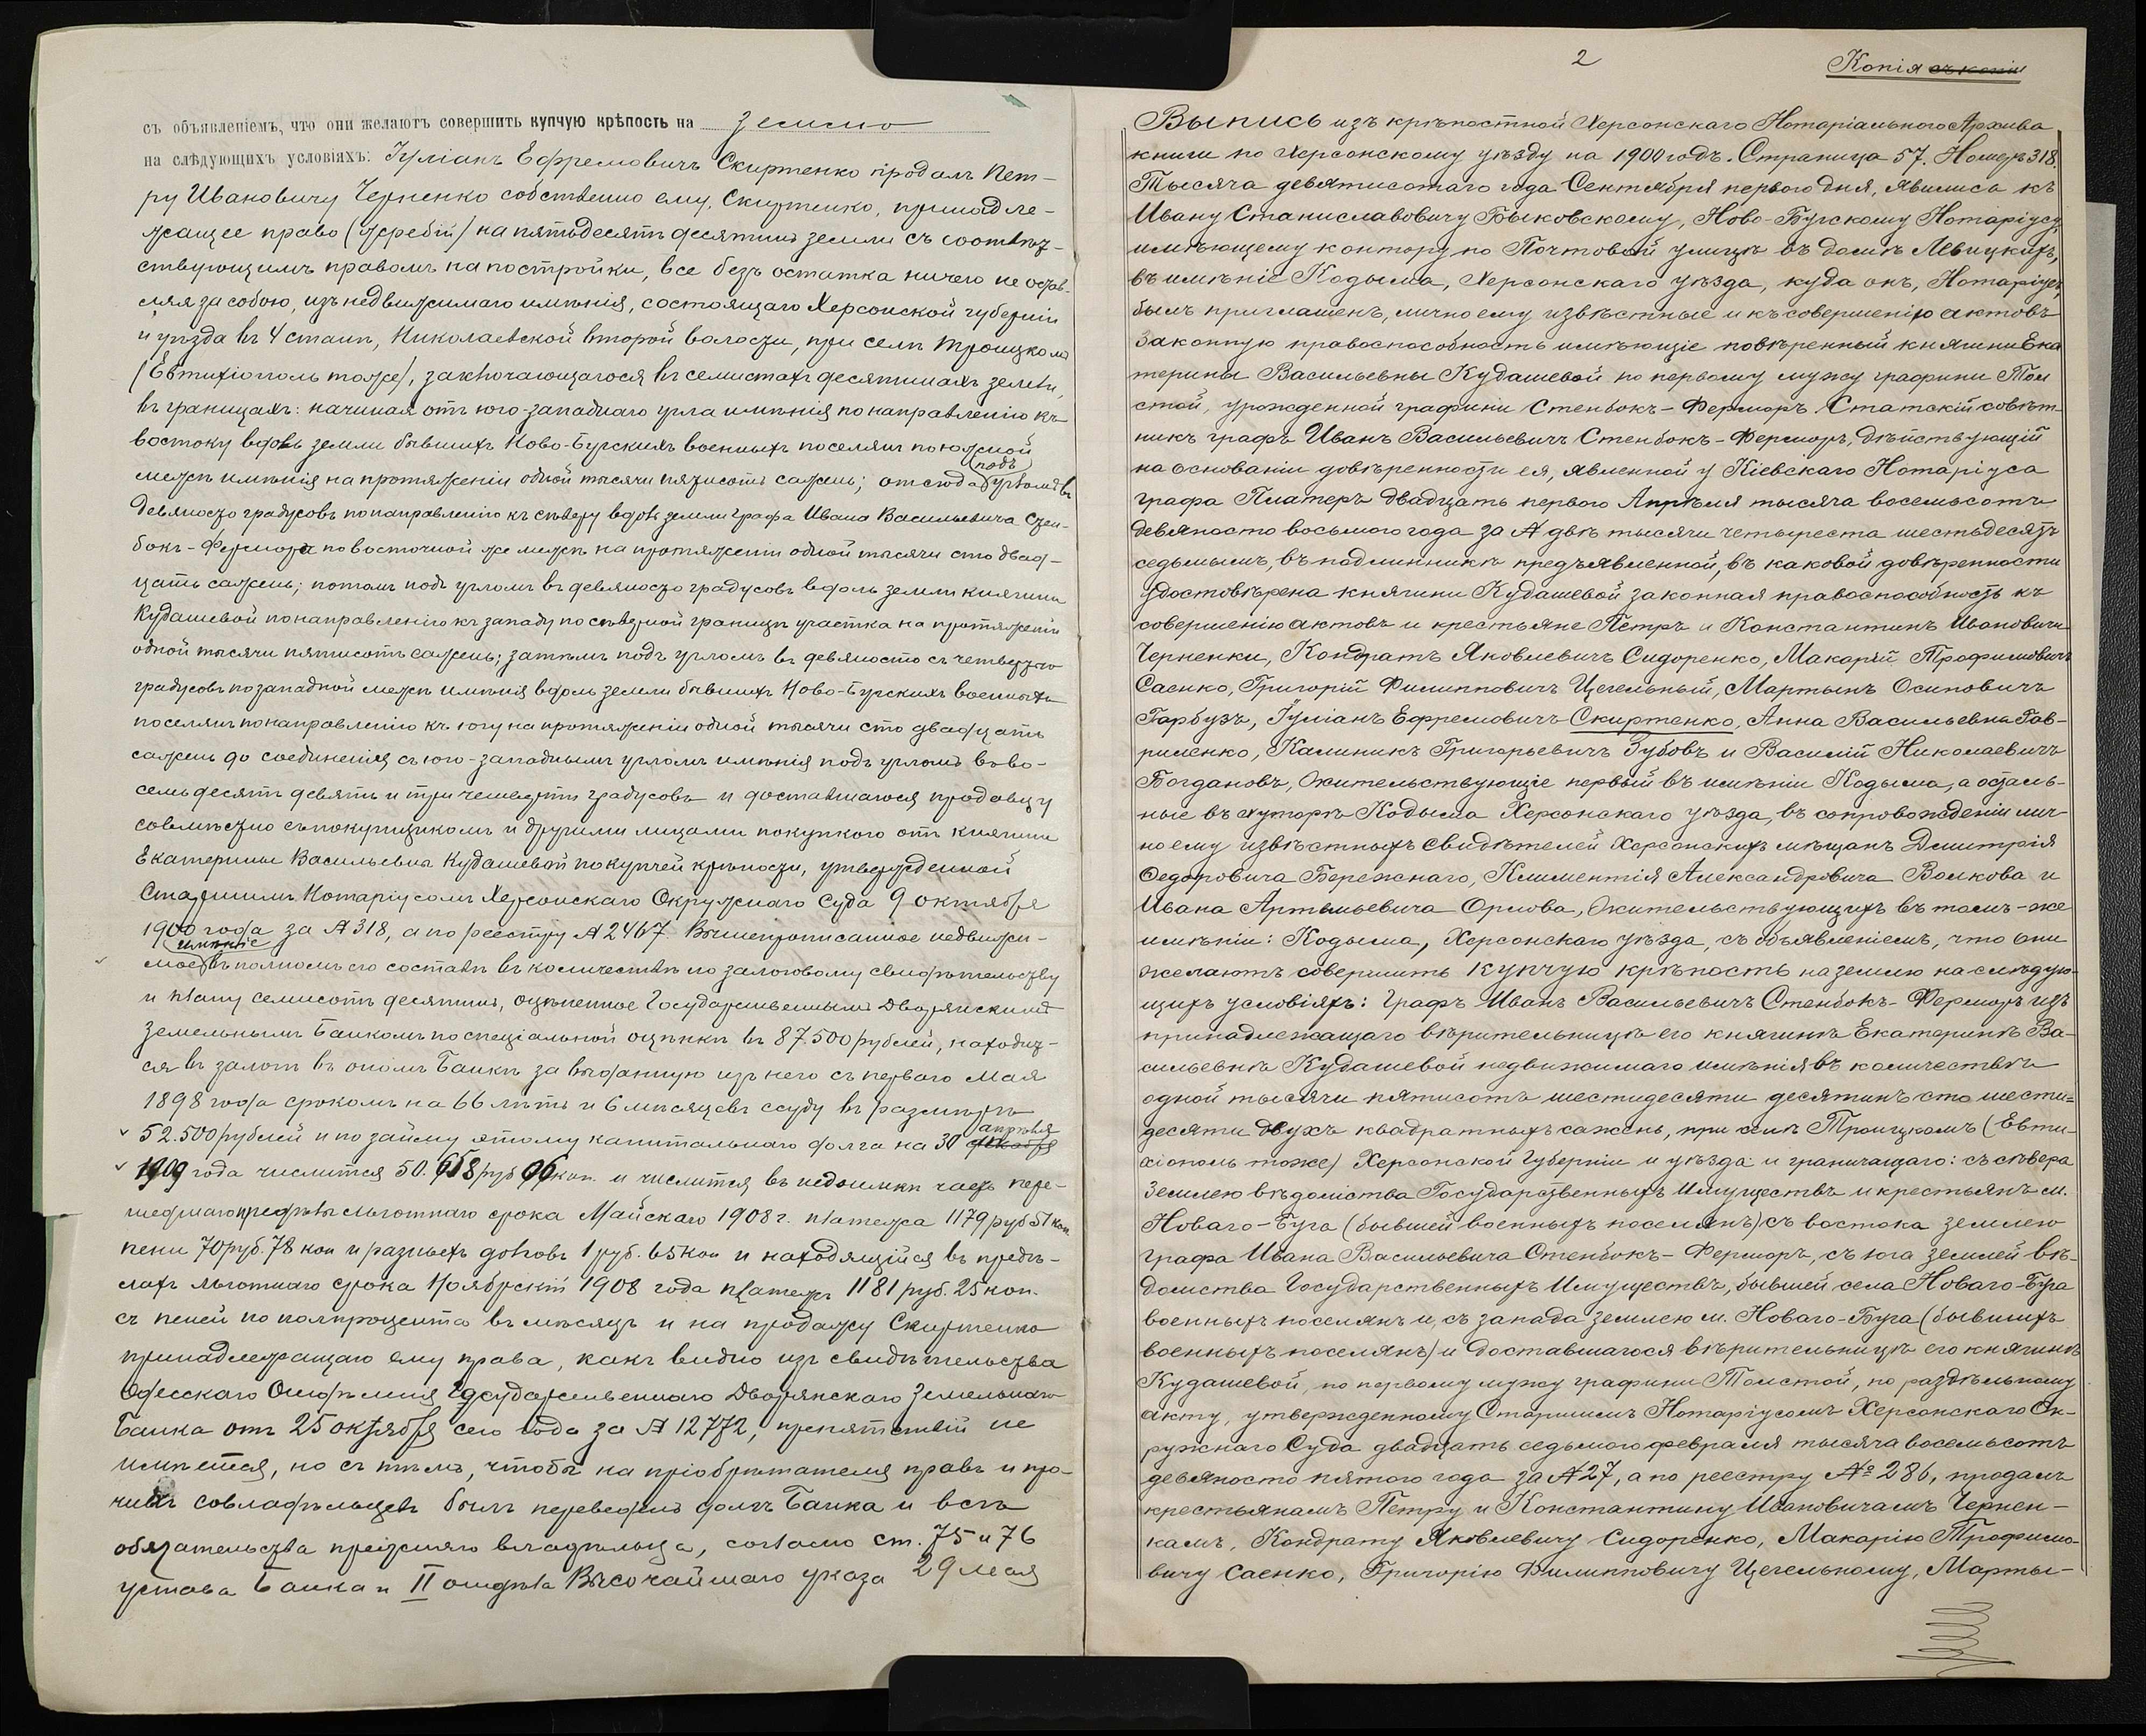 съ объявленіемъ, что они желаютъ совершить купчую крѣпость на землю
на слѣдующихъ условіяхъ: Іуліанъ Ефремовичъ Скиртенко продалъ Пет-
ру Ивановичу Черненко собственно ему, Скиртенко, принадле-
жащее право (жребій) на пятьдесятъ десятинъ земли съ соотвѣт-
ствующимъ правомъ на постройки, все безъ остатка ничего не остав-
ляя за собою, изъ недвижимаго имѣнія, состоящаго Херсонской губерніи
и уѣзда въ 4 станѣ, Николаевской второй волости, при селѣ Троицкомъ
(Евтихіополь тоже), заключающагося въ семистахъ десятинахъ земли,
въ границахъ: начиная отъ юго-западнаго угла имѣнія по направленію къ
востоку вдоль земли бывшихъ Ново-Бугскихъ военныхъ поселянъ по южной
межѣ имѣнія на протяженіи одной тысячи пятисотъ сажень; отсюда подъ угломъ въ
девяносто градусовъ по направленію къ сѣверу вдоль земли графа Ивана Васильевича Стен-
бокъ-Фермора по восточной же межѣ на протяженіи одной тысячи сто двад-
цать сажень; потомъ подъ угломъ въ девяносто градусовъ вдоль земли княгини
Кудашевой по направленію къ западу по сѣверной границѣ участка на протяженіи
одной тысячи пятисотъ сажень; затѣмъ подъ угломъ въ девяносто съ четвертью
градусовъ по западной межѣ имѣнія вдоль земли бывшихъ Ново-Бугскихъ военныхъ
поселянъ по направленію къ югу на протяженіи одной тысячи сто двадцать
сажень до соединенія съ юго-западнымъ угломъ имѣнія подъ угломъ въ во-
семьдесятъ девять и три четверти градусовъ и доставшагося продавцу
совмѣстно съ покупщикомъ и другими лицами покупкою отъ княгини
Екатерины Васильевны Кудашевой по купчей крѣпости, утвержденной
Старшимъ Нотаріусомъ Херсонскаго Окружнаго Суда 9 октября
1900 года за № 318, а по реестру № 2467. Вышепрописанное недвижи-
мое имѣніе въ полномъ его составѣ въ количествѣ по залоговому свидѣтельству
и плану семисотъ десятинъ, оцѣненное Государственнымъ Дворянскимъ
Земельнымъ Банкомъ по спеціальной оцѣнкѣ въ 87.500 рублей, находит-
ся въ залогѣ въ ономъ Банкѣ за выданную изъ него съ перваго Мая
1898 года срокомъ на 66 лѣтъ и 6 мѣсяцевъ ссуду въ размѣрѣ
52.500 рублей и по займу этому капитальнаго долга на 30 апрѣля
1909 года числится 50.618 руб 06 коп. и числится въ недоимкѣ часть пере-
шедшаго предѣлы льготнаго срока Майскаго 1908 г. платежа 1179 руб 51 коп
пени 70 руб. 78 коп и разныхъ долговъ 1 руб. 65 коп и находящійся въ предѣ-
лахъ льготнаго срока Ноябрскій 1908 года платежъ 1181 руб. 25 коп.
съ пеней по полпроцента въ мѣсяцъ и на продажу Скиртенко
принадлежащаго ему права, какъ видно изъ свидѣтельства
Одесскаго Отдѣленія Государственнаго Дворянскаго Земельнаго
Банка отъ 25 октября сего года за № 12772, препятствій не
имѣется, но съ тѣмъ, чтобы на пріобрѣтателя правъ и про-
чихъ совладѣльцевъ былъ переведенъ долгъ Банка и всѣ
обязательства прежняго владѣльца, согласно ст. 75 и 76
устава Банка и II отдѣла Высочайшаго указа 29 мая
2
Копія съ копіи
Выпись изъ крѣпостной Херсонскаго Нотаріальнаго Архива
книги по Херсонскому уѣзду на 1900 годъ. Страница 57. Номеръ 318.
Тысяча девятисотаго года Сентября перваго дня, явились къ
Ивану Станиславовичу Быковскому, Ново-Бугскому Нотаріусу,
имѣющему контору по Почтовой улицѣ въ домѣ Левицкихъ,
въ имѣніе Кодыма, Херсонскаго уѣзда, куда онъ, Нотаріусъ,
былъ приглашенъ, лично ему извѣстные и къ совершенію актовъ
законную правоспособность имѣющіе повѣренный княгини Ека
терины Васильевны Кудашевой по первому мужу графини Тол
стой, урожденной графини Стенбокъ-Ферморъ. Статскій совѣт-
никъ графъ Иванъ Васильевичъ Стенбокъ-Ферморъ, дѣйствующій
на основаніи довѣренности ея, явленной у Кіевскаго Нотаріуса
графа Платеръ двадцать перваго Апрѣля тысяча восемьсотъ
девяносто восьмого года за № двѣ тысячи четыреста шестьдесятъ
седьмымъ, въ подлинникѣ предъявленной, въ каковой довѣренности
удостовѣрена княгини Кудашевой законная правоспособность къ
совершенію актовъ и крестьяне Петръ и Константинъ Ивановичи
Черненки, Кондратъ Яковлевичъ Сидоренко, Макарій Трофимовичъ
Саенко, Григорій Филипповичъ Цегельный, Мартынъ Осиповичъ
Гарбузъ, Іуліанъ Ефремовичъ Скиртенко, Анна Васильевна Гав-
риленко, Калиникъ Григорьевичъ Зубовъ и Василій Николаевичъ
Богдановъ, жительствующіе первый въ имѣніи Кодыма, а осталь-
ные въ хуторѣ Кодыма Херсонскаго уѣзда, въ сопровожденіи лич
но ему извѣстныхъ свидѣтелей Херсонскихъ мѣщанъ Дмитрія
Федоровича Бережнаго, Климентія Александровича Волкова и
Ивана Артемьевича Орлова, жительствующихъ въ томъ-же
имѣніи: Кодыма, Херсонскаго уѣзда, съ объявленіемъ, что они
желаютъ совершить купчую крѣпость на землю на слѣдую-
щихъ условіяхъ: Графъ Иванъ Васильевичъ Стенбокъ-Ферморъ изъ
принадлежащаго вѣрительницѣ его княгинѣ Екатеринѣ Ва-
сильевнѣ Кудашевой недвижимаго имѣнія въ количествѣ
одной тысячи пятисотъ шестидесяти десятинъ сто шести-
десяти двухъ квадратныхъ сажень, при селѣ Троицкомъ (Евти-
хіополь тоже) Херсонской губерніи и уѣзда и граничащаго: съ сѣвера
землею вѣдомства Государственныхъ Имуществъ и крестьянъ м.
Новаго-Буга (бывшей военныхъ поселянъ) съ востока землею
графа Ивана Васильевича Стенбокъ-Ферморъ, съ юга землей вѣ-
домства Государственныхъ Имуществъ, бывшей села Новаго-Буга
военныхъ поселянъ и, съ запада землею м. Новаго-Буга (бывшихъ
военныхъ поселянъ) и доставшагося вѣрительницѣ его княгинѣ
Кудашевой, по первому мужу графини Толстой, по раздѣльному
акту, утвержденному Старшимъ Нотаріусомъ Херсонскаго Ок-
ружнаго Суда двадцать седьмого февраля тысяча восемьсотъ
девяносто пятого года за № 27, а по реестру № 286, продалъ
крестьянамъ Петру и Константину Ивановичамъ Чернен-
камъ, Кондрату Яковлевичу Сидоренко, Макарію Трофимо-
вичу Саенко, Григорію Филипповичу Цегельному, Марты-